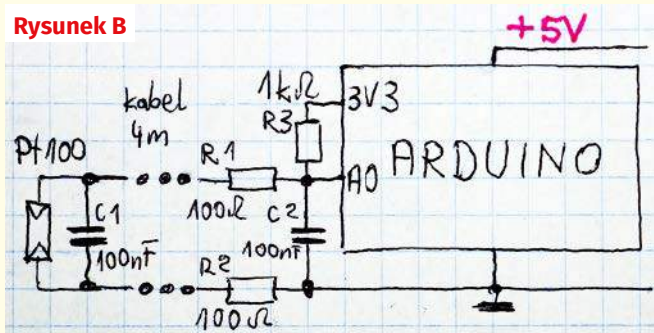 Rysunek B
+5V
kabel
4m
1kΩ
R3
3V3
Pt100
R1
ARDUINO
A0
C1
100Ω
C2
100nF
100nF
R2
100Ω